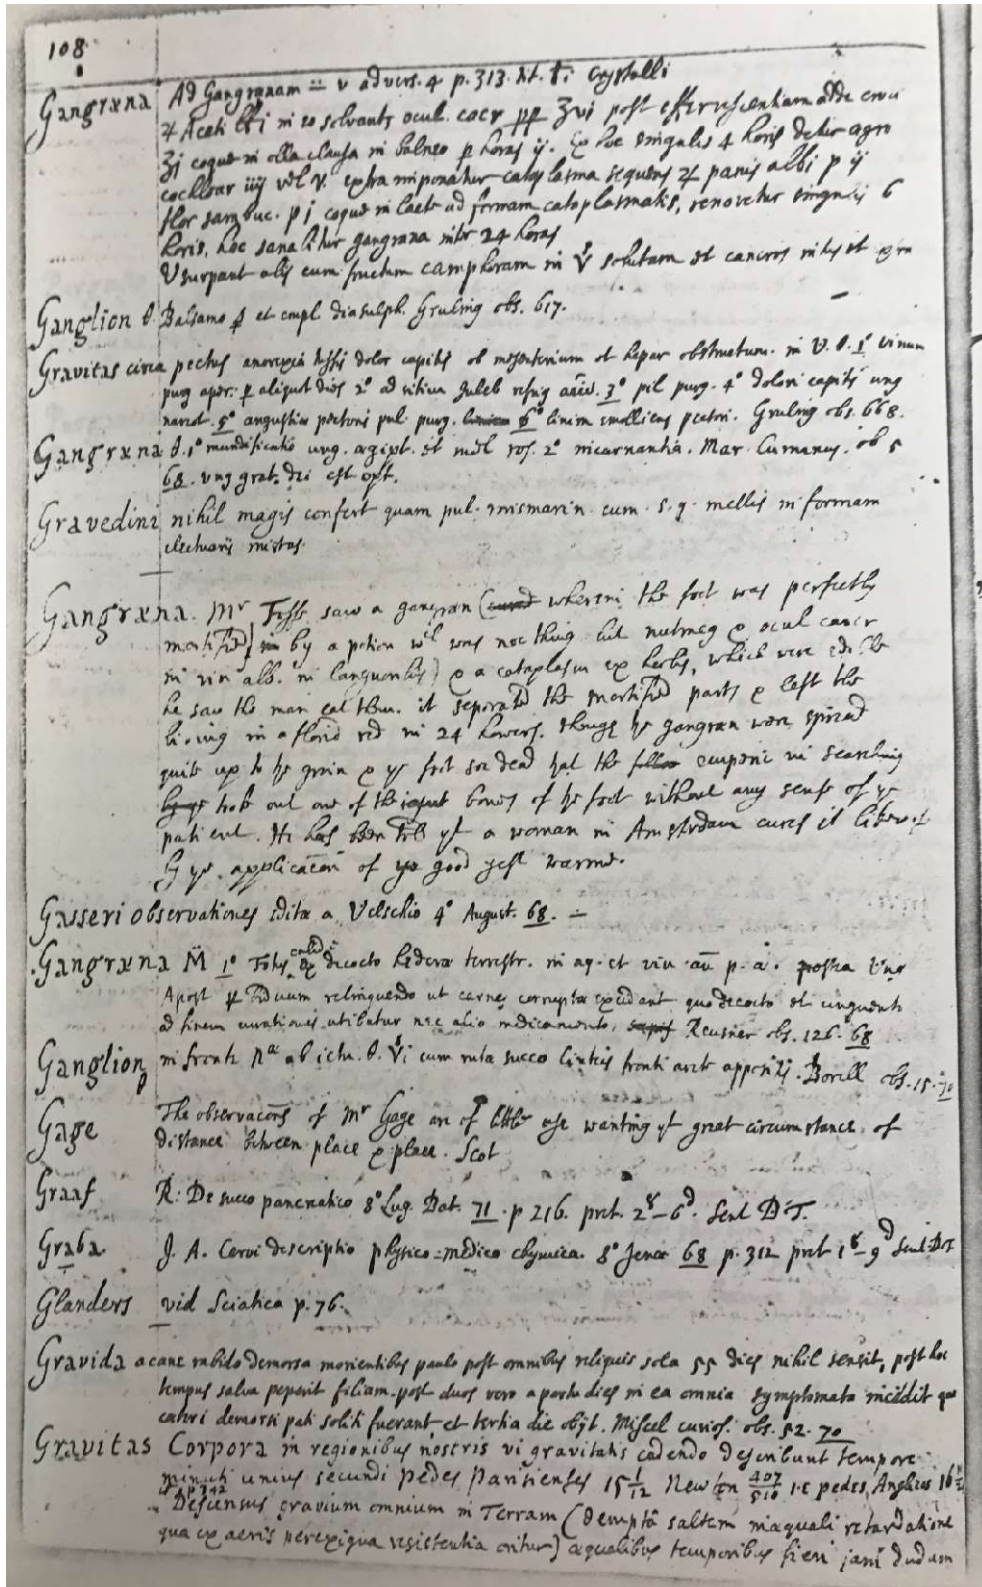 108
Gangræna Ad Gangrænam = v advers. 4 p. 313. Crystalli
♃ Aceti ℔j in eo solvantr ocul. cancr pp ʒvi post effervescentiam adde croci
ʒj coque in olla clausa in balneo p horas ij. Ex hoc singulis 4 horis detur ægro
cochlear iiij vel v. extra imponatur cataplasma sequens ♃ panis albi p ij
flor sambuc. p j coque in lacte ad formam cataplasmatis, renovetur singulis 6
horis, hoc sanabitur gangræna intr 24 horas
Usurpant alij cum fructum camphoram in solutam et cancros intus et
Ganglion θ. Balsamo et empl diasulph. Gruling obs. 617.
Gravitas circa pectus anorexia tussis dolor capitis ob mesenterium et hepar obstructum. in V. θ. 1° vinum
purg aper. p aliquot dies 2° ad sitim Juleb refrig 3° pil purg. 4° dolori capitis ung
5° angustiæ pectoris pul purg. 6° linim emolliens pectori. Gruling obs. 668.
Gangræna θ. 1° mundificatio ung. ægipt. et mel ros. 2° incarnantia. Mar. Cumanus. ob 5
68. ung grat. dei est opt.
Gravedini nihil magis confert quam pul. rosmarin cum s. q. mellis in formam
electuarii mistus
Gangræna. Mr saw a gangræn (cured wherein the foot was perfectly
mortified) in by a potion wch was nothing but nutmeg & ocul cancr
in vin alb. in & a cataplasm ex herbs, which were edible
he saw the man eat them. it seperated the mortified parts & left the
living in a florid red in 24 howers. though ye gangræn were spread
quite up to ye groin & ye foot soe dead yat the in searching
tooke out one of the bones of ye foot without any sense of ye
patient. He has been told yt a woman in Amsterdam cures it likewise
by ye application of good yest warme.
Gasseri observationes editæ a Velschio 4° August. 68. –
Gangræna M 1° calide decocto hederæ terrestr. in aq. et vin an p. æ. postea Ung
Apost relinquendo ut carnes corruptæ excidant quo decocto et unguento
ad finem curationis utibatur nec alio medicamento. Reusner obs. 126. 68
Ganglion in fronte ab ictu. θ. cum rutæ succo linteis fronti arcte appositis. Borell obs. 15. 70
Gage The observacons of Mr Gage are of little use wanting yt great circumstance of
distance between place & place. Scot
Graaf R: De succo pancreatico 8° Lug. Bat. 71. p 216. pret. 2s–6d. Sent D.T.
Graba J. A. Cervi descriptio physico=medico chymica. 8° Jenæ 68 p. 312 pret 1s–9d Sent D.T
Glanders vid Sciatica p. 76.
Gravida a cane rabido demorsa morientibus paulo post omnibus reliquis sola 55 dies nihil sensit, post hoc
tempus salva peperit filiam. post duos vero a partu dies in ea omnia symptomata incidit quæ
cæteri demorsi pati soliti fuerant, et tertia die obijt. Miscel curios. obs. 52. 70
Gravitas Corpora in regionibus nostris vi gravitatis cadendo describunt tempore
minuti unius secundi pedes Parisienses 15 1/12 Newton 407/510 i.e pedes Anglicos 16
Descensus gravium omnium in Terram (dempta saltem inæquali retardatione
quæ ex aeris perexigua resistentia oritur) æqualibus temporibus fieri jam dudum